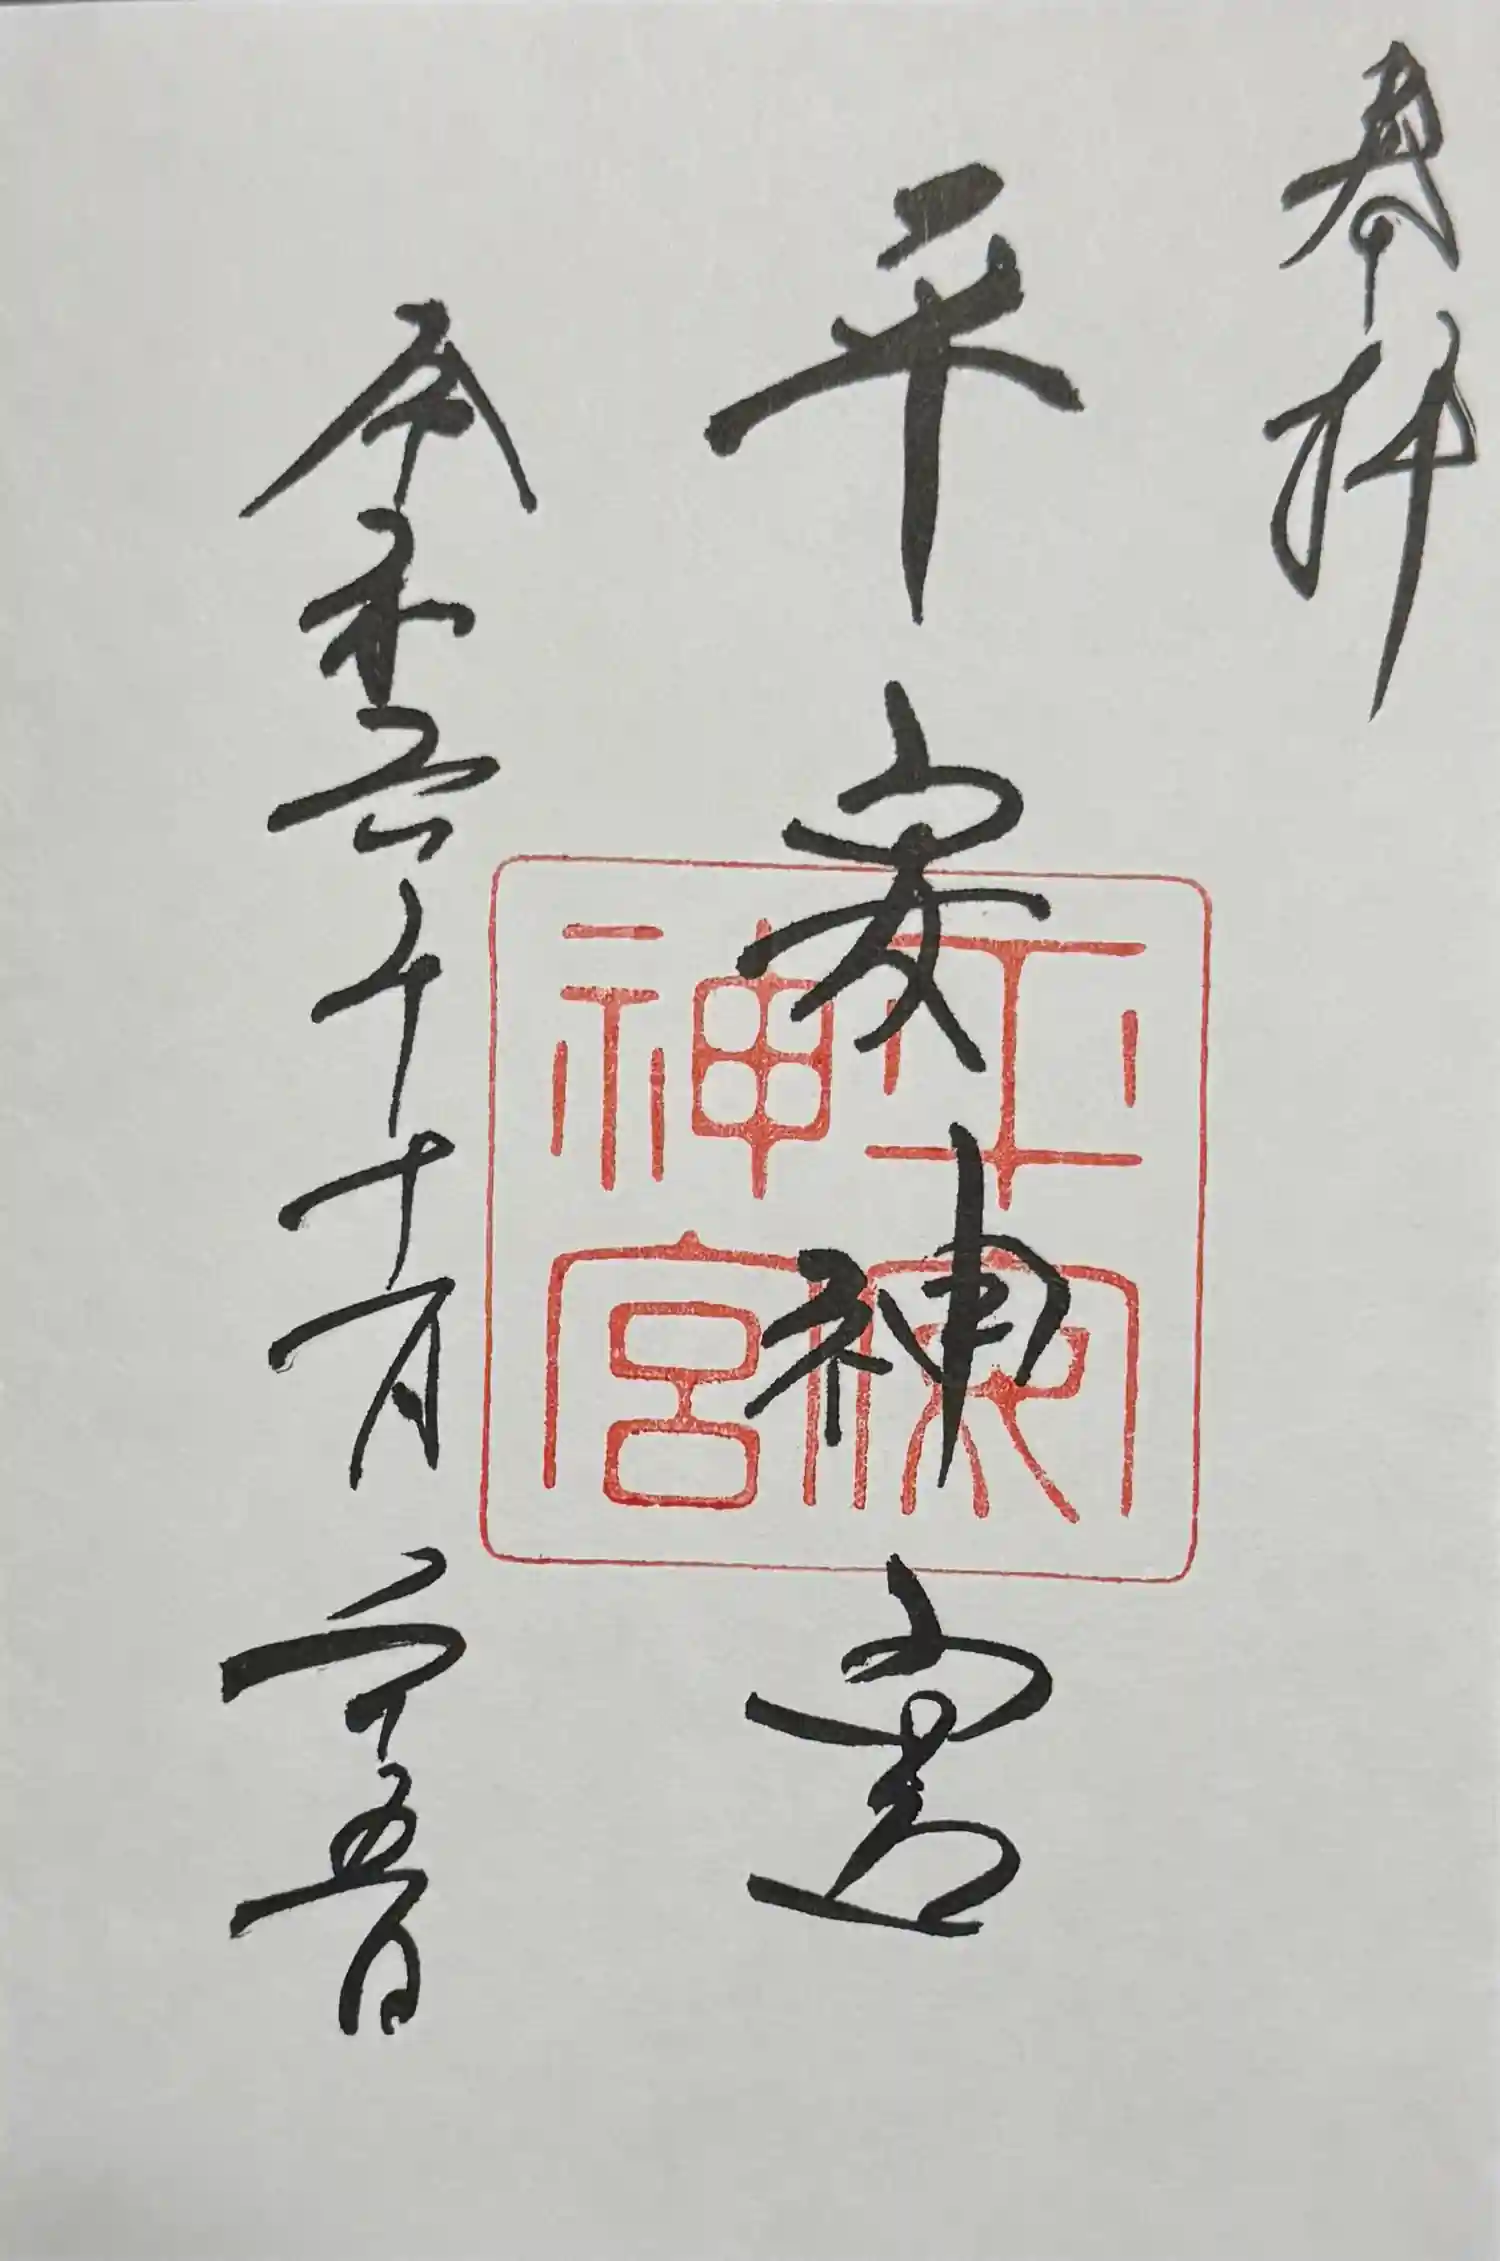 奉拝
平安神宮
令和六年十一月二十五日
平安神宮